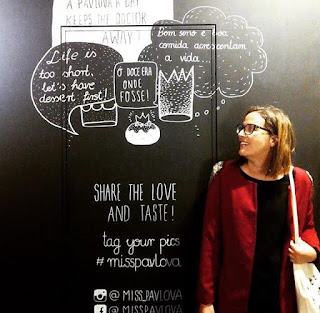 A PAVLOVA A DAY
KEEPS THE DOCTOR
AWAY!
Life is
too short,
let's have
dessert first!
Ó DOCE ERA
ONDE
FOSSE!
Bom sino e boa
comida acrescentam
a vida
SHARE THE LOVE
AND TASTE!
tag your pics
#misspavlova
@MISS_PAVLOVA
@MISS PAVLOVA